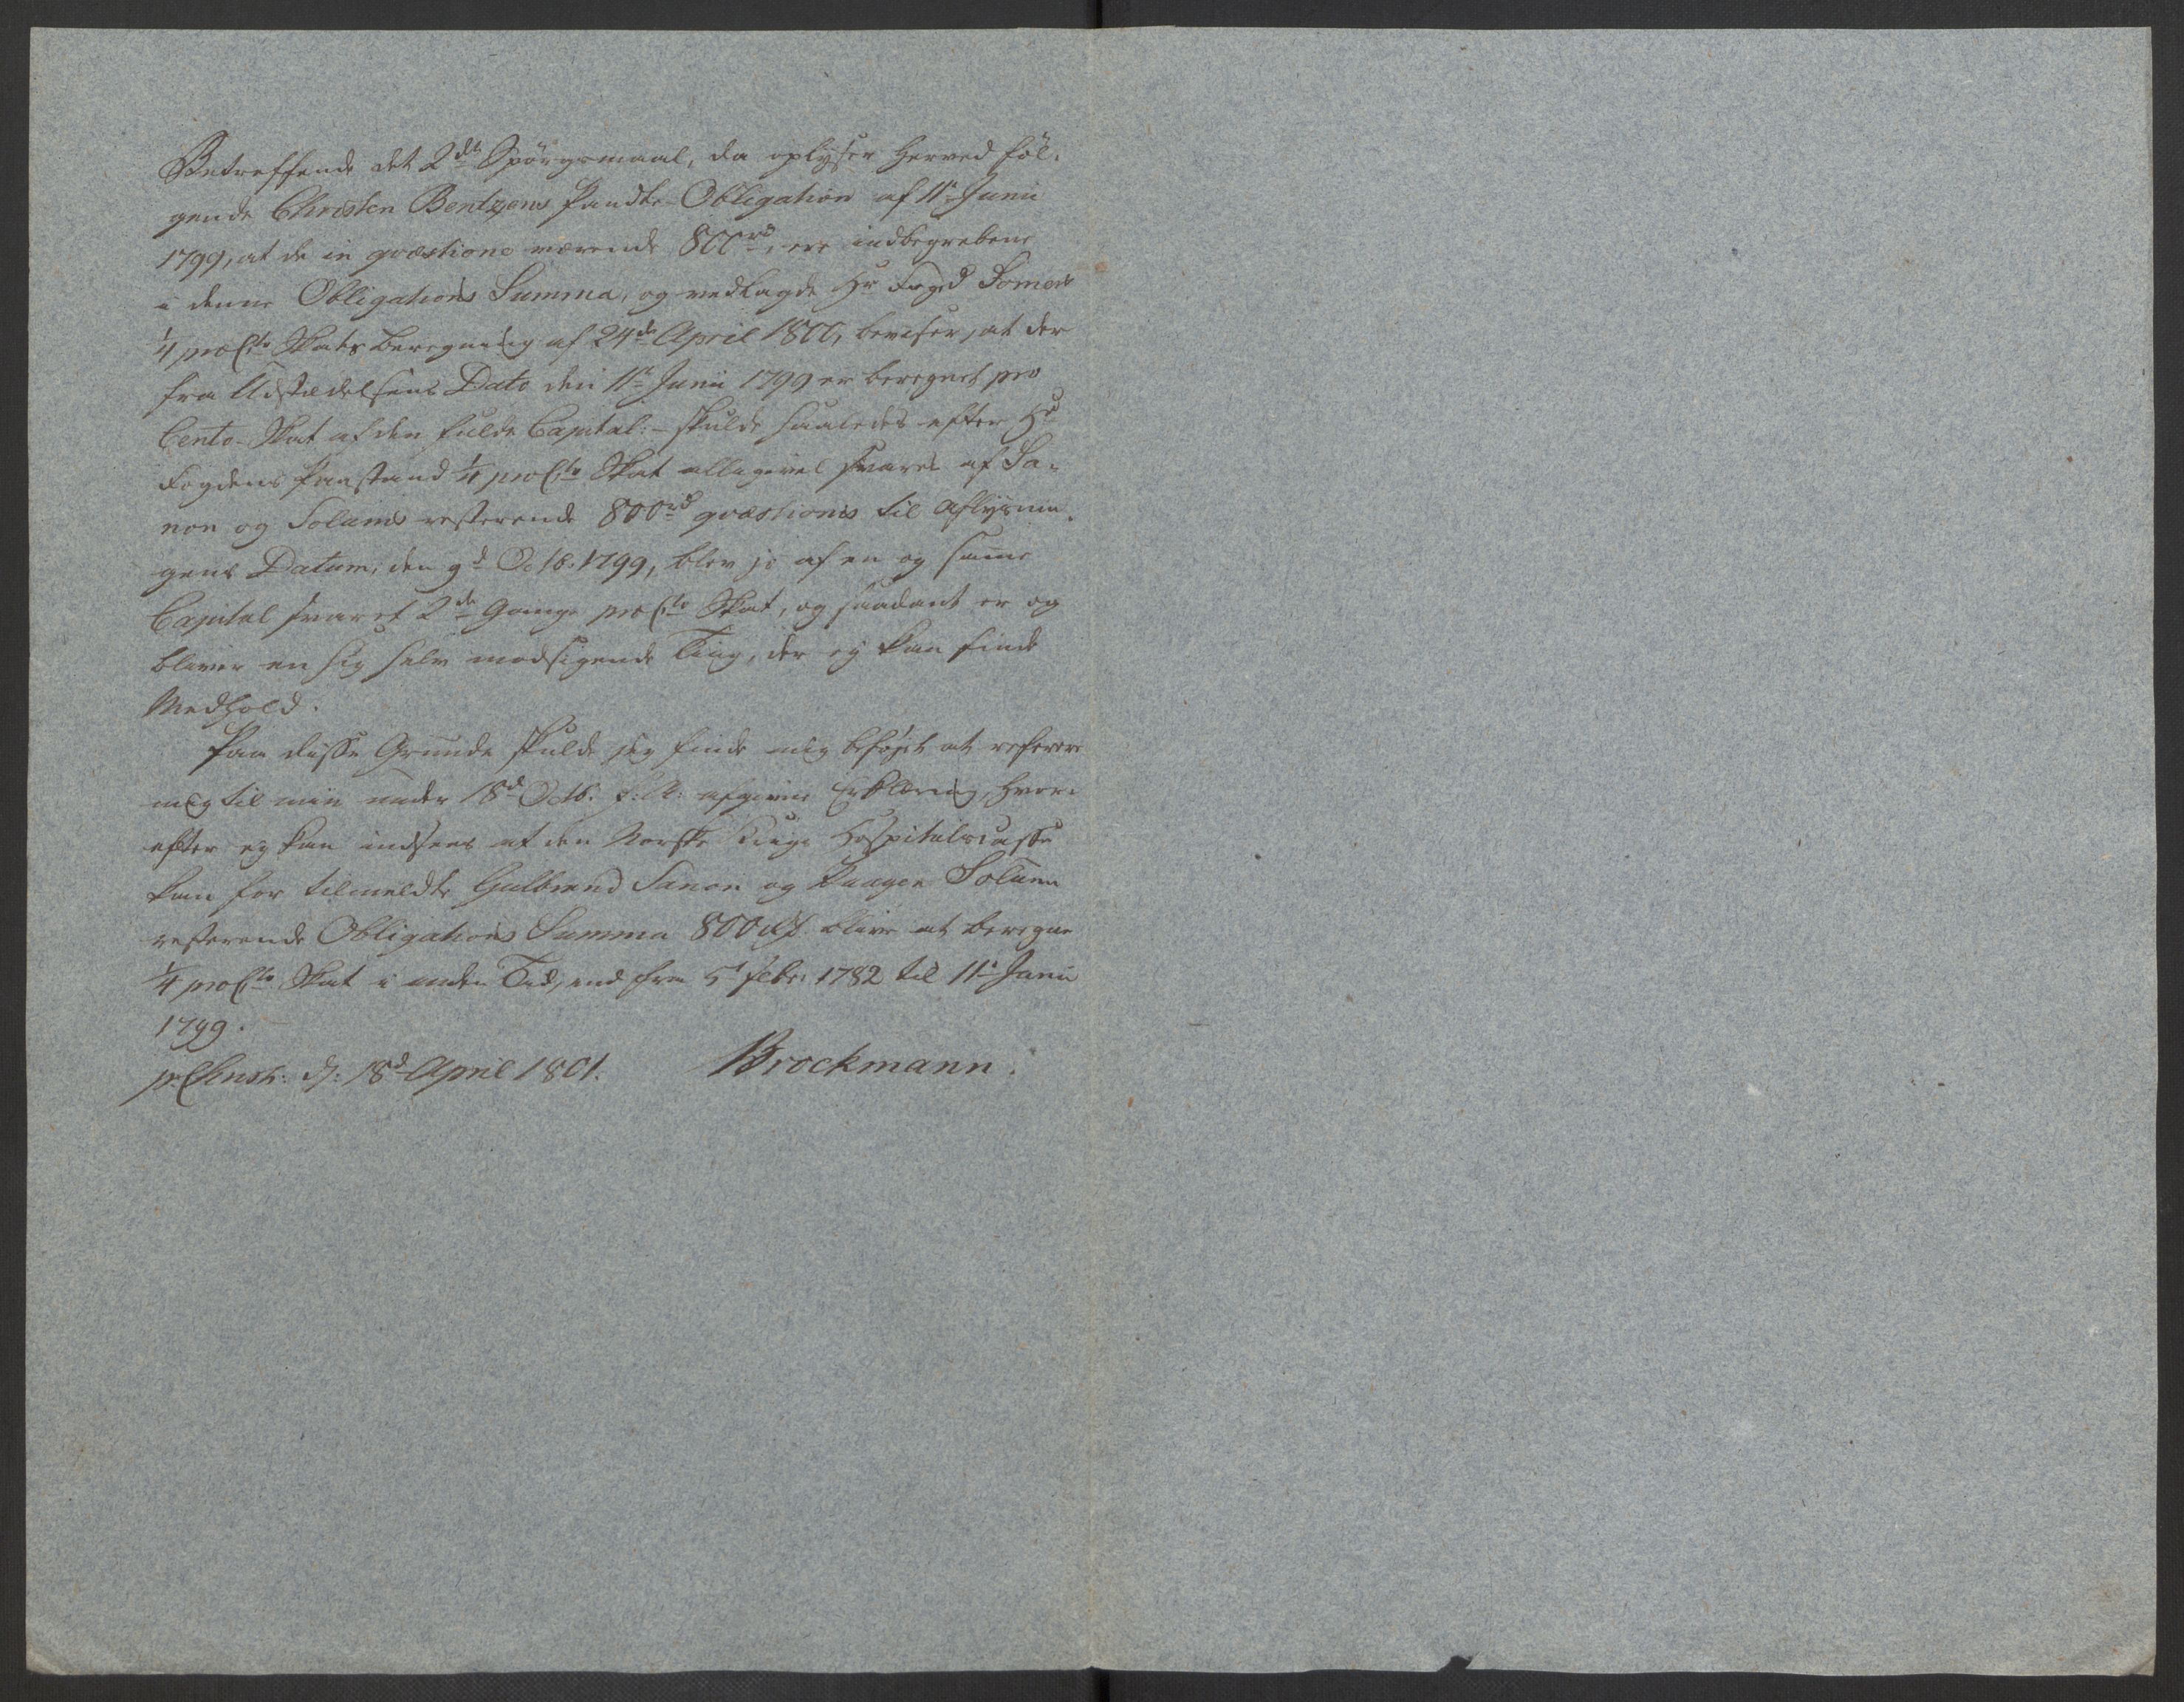 Betreffende det 2det Spörgsmaal, da oplyser herved föl-
gende Christen Bentzens Pandte-Obligation af 11te Junii
1799, at de in qvæstione værende 800rd, ere indbegrebene
i denne Obligations Summa, og vedlagde Hr Foged
1/4 pro Cto Skats beregning af 24de April 1800, beviser, at der
fra Udstædelsens Dato den 11te Junii 1799 er beregnet pro
Cento-Skat af den fulde Capital:- skulde saaledes efter Hr
Fogdens Paastand 1/4 pro Cto Skat alligevel svares af Sa-
non og Solums resterende 800rd qvæstionis til Aflysnin-
gens Datum, den 9d Octb. 1799, blev jo af en og samme
Capital svaret 2de Gange pro Cto Skat, og saadant er og
bliver en sig selv modsigende Ting, der ej kan finde
Medhold.
Paa disse Grunde skulde jeg finde mig beföjet at referere
mig til min under 18d Octb. f: A: afgivne Erklæring, hvor-
efter ej kan indsees at den Norske Krigs Hospitalscasse
kan for tilmeldte Gulbrand Sanon og Haagen Solum
resterende Obligations Summa 800rd blive at beregne
1/4 pro Cto Skat i anden Tid, end fra 5t Febr: 1782 til 11te Junii
1799.
pr. Chrsth: d: 18d April 1801. Brockmann.